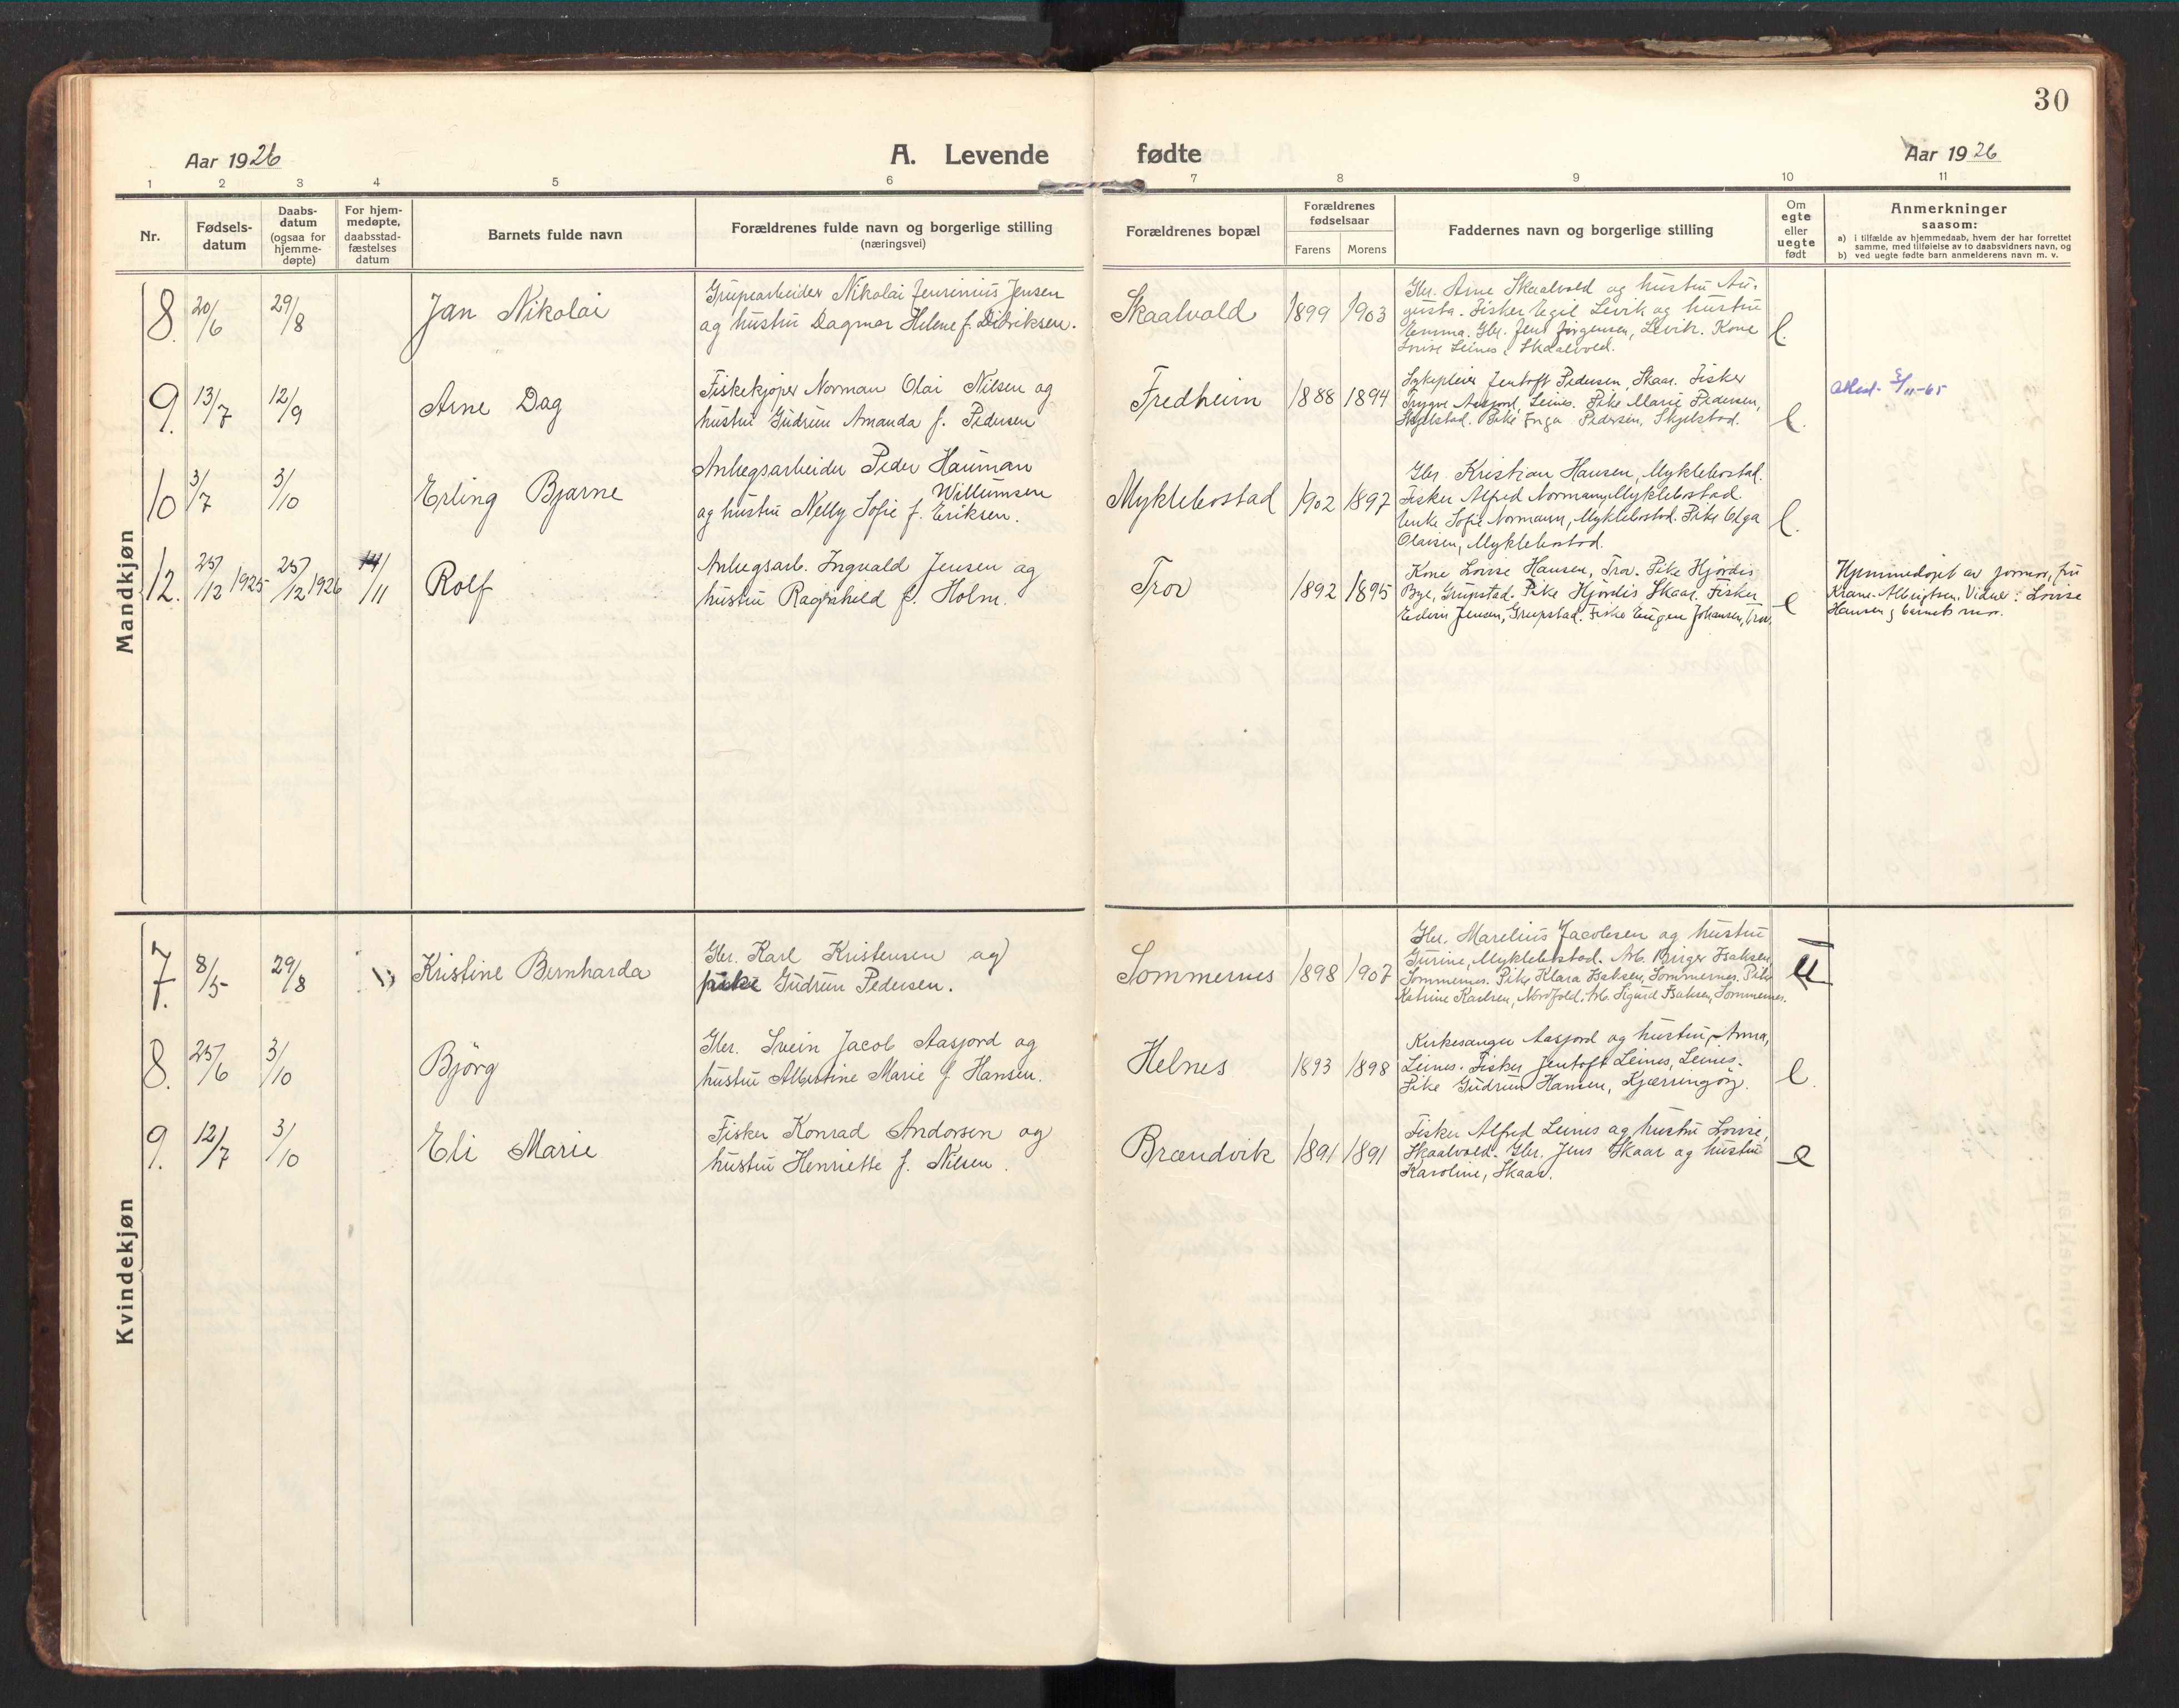 30
Aar 1926
A. Levende
fødte
Aar 1926
1 2 3 4 5 6 7 8 9 10 11
Nr.
Fødsels-
datum
Daabs-
datum
(ogsaa for
hjemme-
døpte)
For hjem-
medøpte,
daabsstad-
fæstelses
datum
Barnets fulde navn
Forældrenes fulde navn og borgerlige stilling
(næringsvei)
Forældrenes bopæl
Forældrenes
fødselsaar
Farens Morens
Faddernes navn og borgerlige stilling
Om
egte
eller
uegte
født
Anmerkninger
saasom:
a) i tilfælde av hjemmedaab, hvem der har forrettet
samme, med tilføielse av to daabsvidners navn, og
b) ved uegte fødte barn anmelderens navn m. v.
Mandkjøn
8. 20/6 29/8
Jan Nikolai
Grubearbeider Nikolai Jensenius Jensen
og hustru Dagmar Helene f. Didriksen.
Skaalvold
1899 1903
Gbr. Arne Skaalvold og hustru Au-
gusta. Fisker Egil Levik og hustru
Emma. Gbr. Jens Jörgensen, Levik. Kone
Lovise Leines, Skaalvold.
e.
9. 13/7 12/9
Arne Dag
Fiskekjøper Norman Olai Nilsen og
hustru Gudrun Amanda f. Pedersen
Fredheim
1888 1894
Sykepleier Jentoft Pedersen, Skaar. Fisker
Trygve Aasjord, Leines. Pike Marie Pedersen,
Skjelstad. Pike Inga Pedersen, Skjelstad.
e.
Attest 5/11-65
10 3/7 3/10
Erling Bjarne
Anlegsarbeider Peder Hauman
Willumsen
og hustru Nelly Sofie f. Eriksen.
Myklebostad
1902 1897
Gbr. Kristian Hansen, Myklebostad.
Fisker Alfred Normann, Myklebostad.
Enke Sofie Normann, Myklebostad. Pike Olga
Olaisen, Myklebostad.
e.
12. 25/12 1925 25/2 1926 14/11
Rolf
Anlegsarb. Ingvald Jensen og
hustru Ragnhild f. Holm.
Trov
1892 1895
Kone Lovise Hansen, Trov. Pike Hjördis
Bye, Grupstad. Pike Hjördis Skaar. Fisker
Edvin Jensen, Grupstad. Fisker Eugen Johansen, Trov.
e
Hjemmedøpt av jormor, fru
Krane-Albrigtsen. Vidner: Lovise
Hansen, barnets mor.
Kvindekjøn
7. 8/5 29/8
Kristine Bernharda
Gbr. Karl Kristensen og
pike Gudrun Pedersen.
Sommernes
1898 1907
Gbr. Marelius Jacobsen og hustru
Gurine, Myklebostad. Arb. Birger Isaksen,
Sommernes. Pike Klara Isaksen, Sommernes. Pike
Katrine Karlsen, Nordfold. Arb. Sigurd Isaksen, Sommernes.
U
8. 25/6 3/10
Björg
Gbr. Svein Jacob Aasjord og
hustru Albertine Marie f. Hansen.
Helnes
1893 1898
Kirkesanger Aasjord og hustru Anna,
Leines. Fisker Jentoft Leines, Leines.
Pike Gudrun Hansen, Kjærringöy.
e.
9. 12/7 3/10
Eli Marie
Fisker Konrad Andorsen og
hustru Henriette f. Nilsen.
Brændvik
1891 1891
Fisker Alfred Leines og hustru Lovise,
Skaalvold. Gbr. Jens Skaar og hustru
Karoline, Skaar.
e